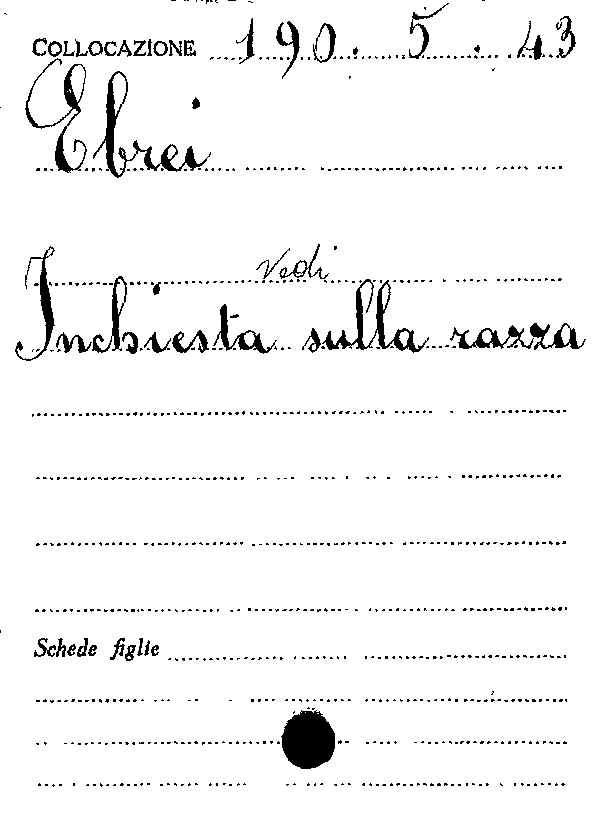 COLLOCAZIONE 190. 5. 43
Ebrei
Vedi
Inchiesta sulla razza
Schede figlie